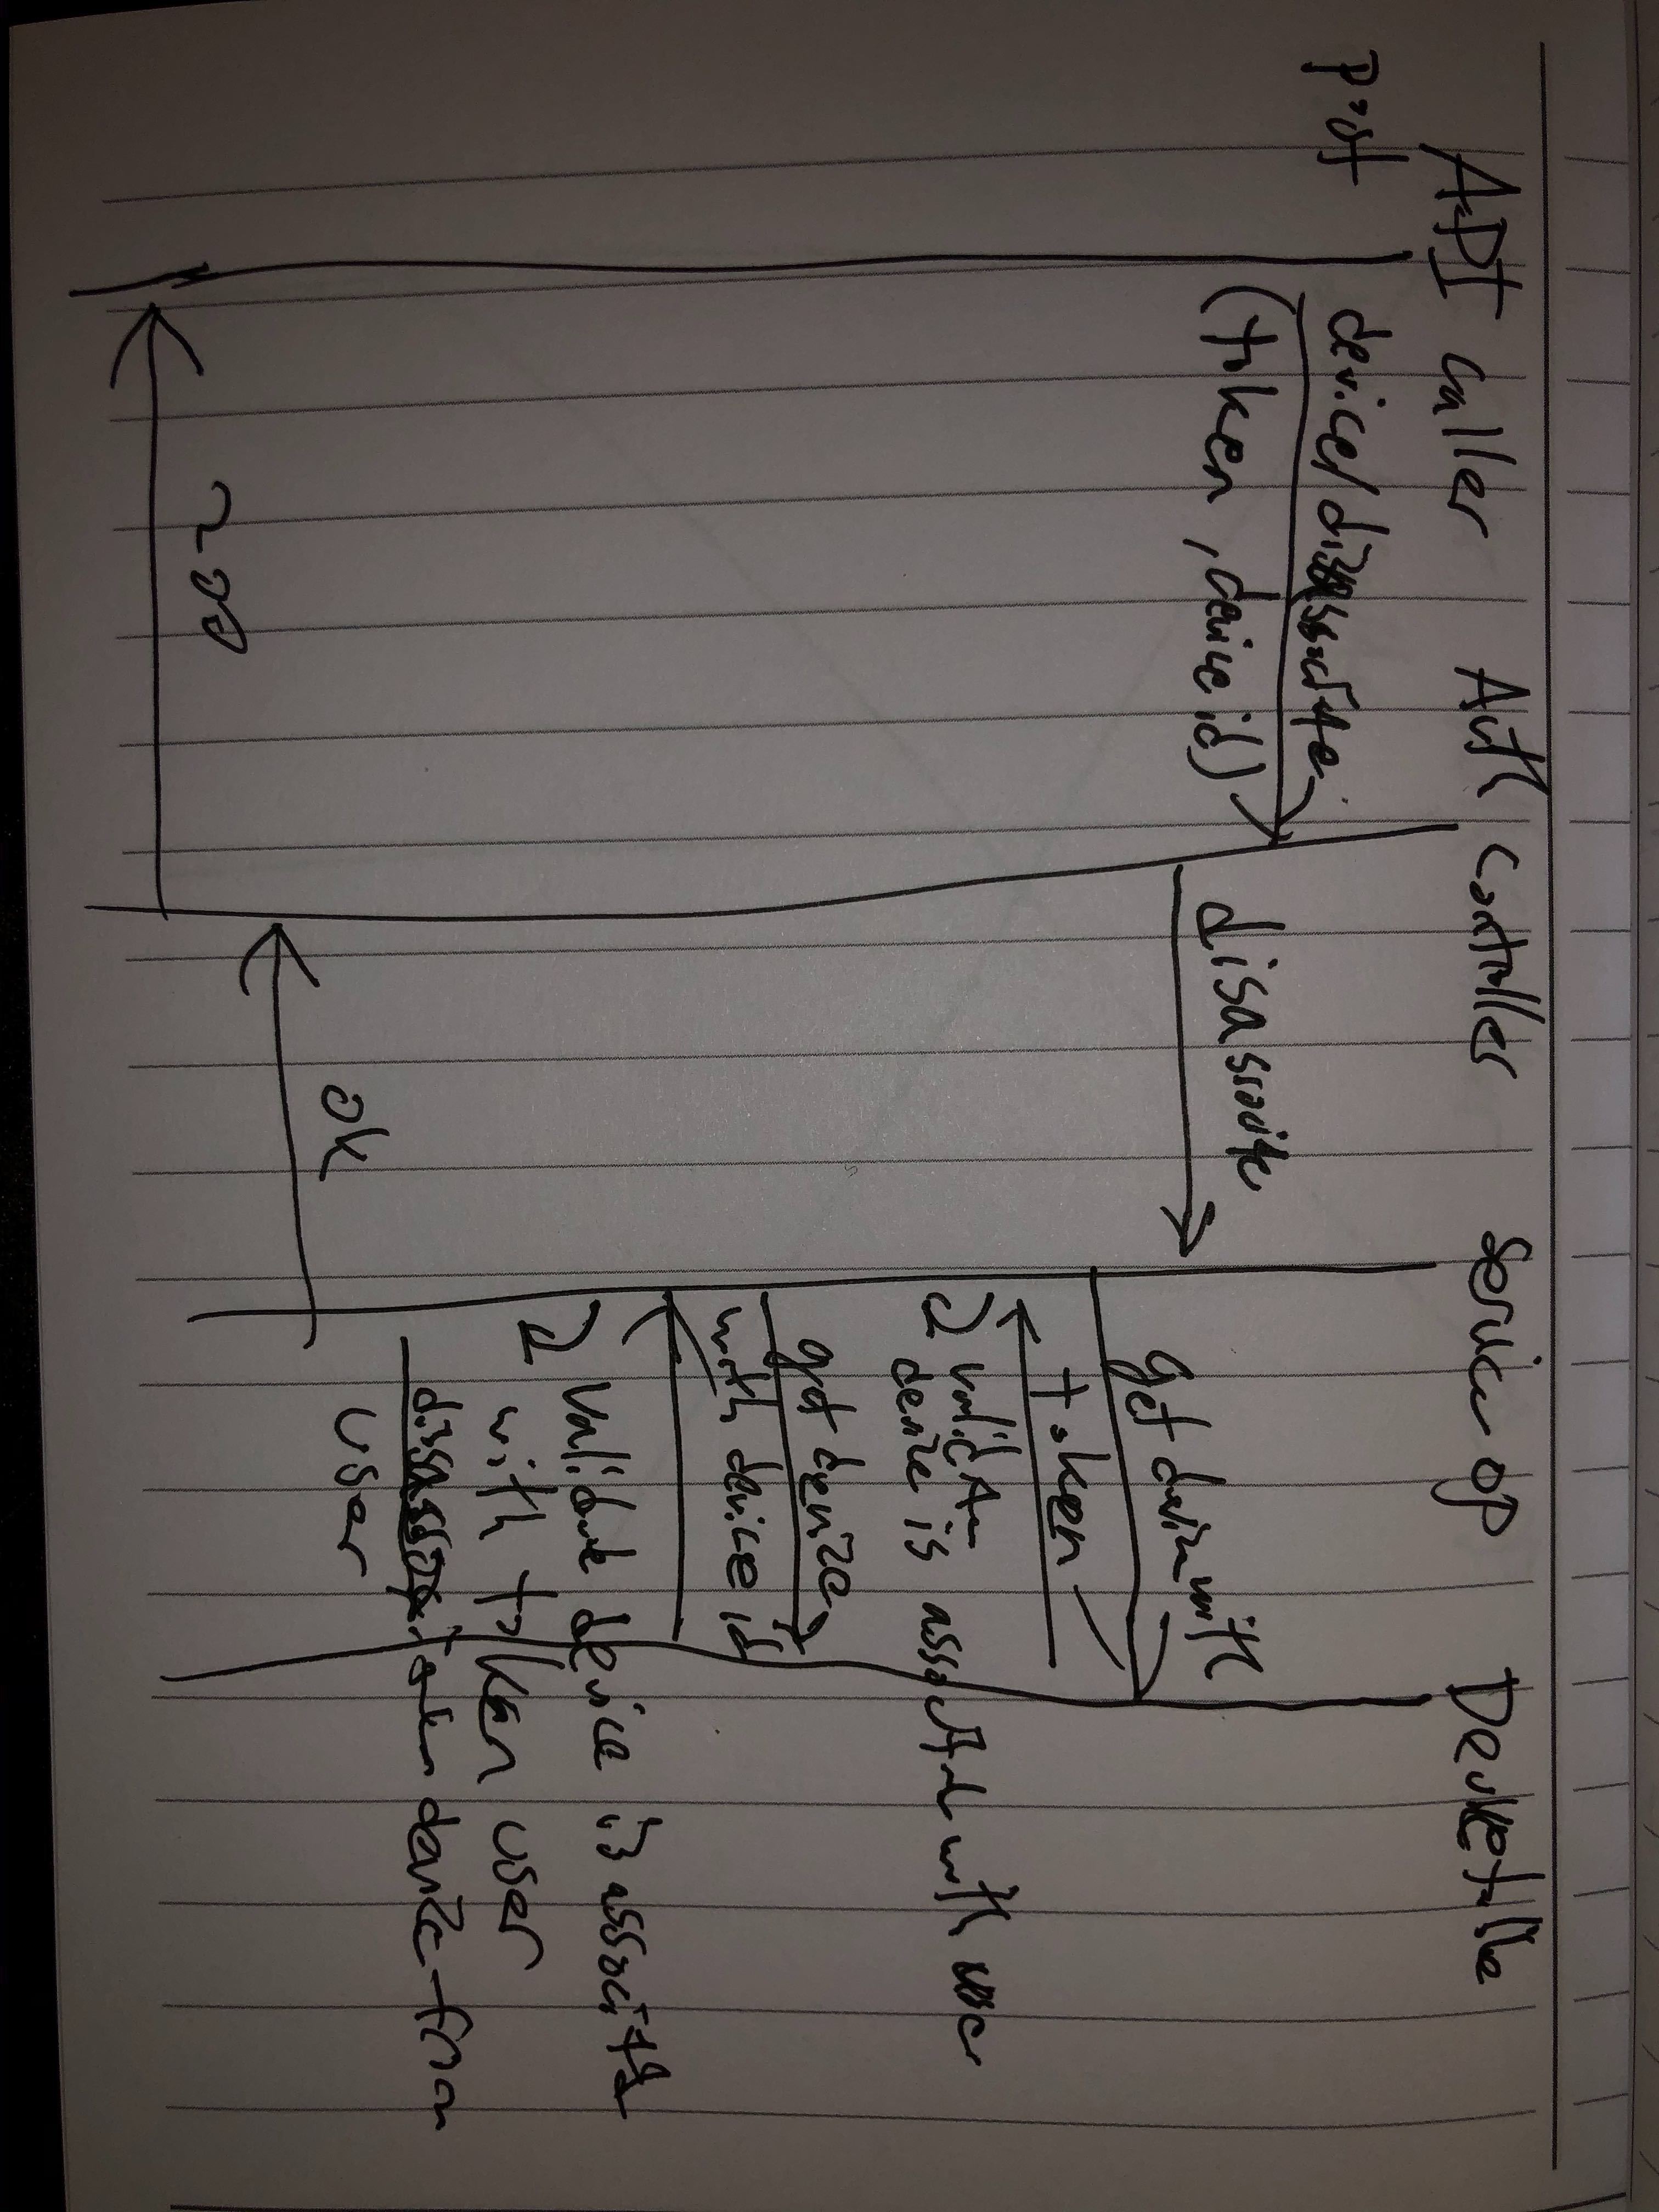 API caller Auth Controller Service op Device table
post
device/disassociate
(token, device id)
disassociate
get device with
token
validate
device is associated with user
get device
with device id
validate device is associated
with token user
disassociate device from
user
ok
200